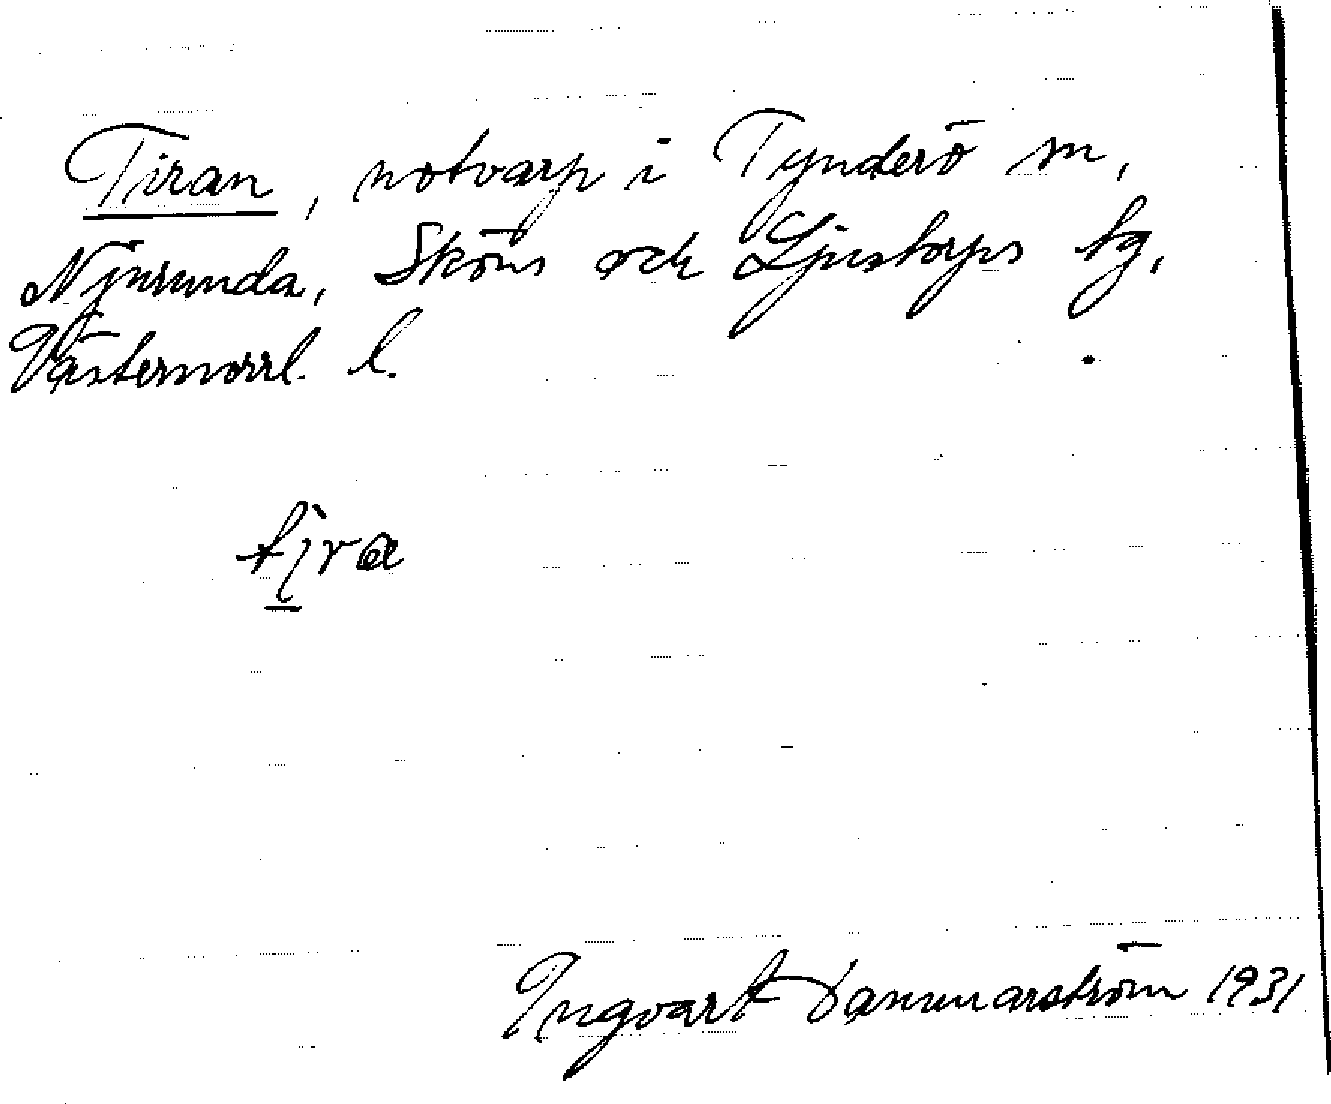 Tiran, notvarp i Tynderö sn,
Njurunda, Sköns och Ljustorps tg,
Västernorrl. l.
Ingvart 1931